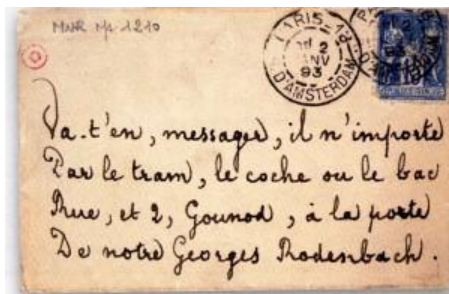 MNR Mp 1210
PARIS-18
2
93
D'AMSTERDAM
93
15
Va-t'en, messager, il n'importe
Par le tram, le coche ou le bac
Rue, et 2, Gounod, à la porte
De notre Georges Rodenbach.